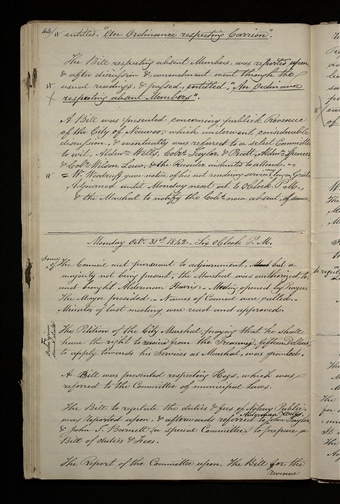 entitled, "An Ordinance respecting Carrion".
The Bill respecting absent Members, was reported upon,
& after discussion & amendment went through the
usual readings, & passed, entitled, "An Ordinance
respecting absent Members".
A Bill was presented concerning publick Provence
of the City of Nauvoo; which underwent considerable
discussion, & eventually was referred to a select Committee
to wit, Aldn. Wells,
Wilson Law, & the Recorder
W. Woodruff gave notice of his not
Adjourned until Monday next at 6 O'Clock P.M.,
& the Marshal to notify the Col. now absent, of same
Monday Oct. 31st 1842. Six O'Clock P.M.
The Council met pursuant to adjournment, but a
majority not being present, the Marshal was authorized to
and bought Alderman Harris. Meeting opened by Prayer.
The Mayor presided. Names of Council were called.
Minutes of last meeting were read and approved.
The Petition of the City Marshal, praying that he shall
have the right to receive from the Treasury, fifteen Dollars,
to apply towards his Services as Marshal, was granted.
A Bill was presented respecting Hogs, which was
referred to the Committee of municipal laws.
The Bill to regulate the duties & fees of Notary Public
was reported upon, & afterwards referred to
& John S. Barnett (a special Committee) to prepare a
Bill of duties & Fees.
The Report of the Committee upon the Bill for the
Revenue